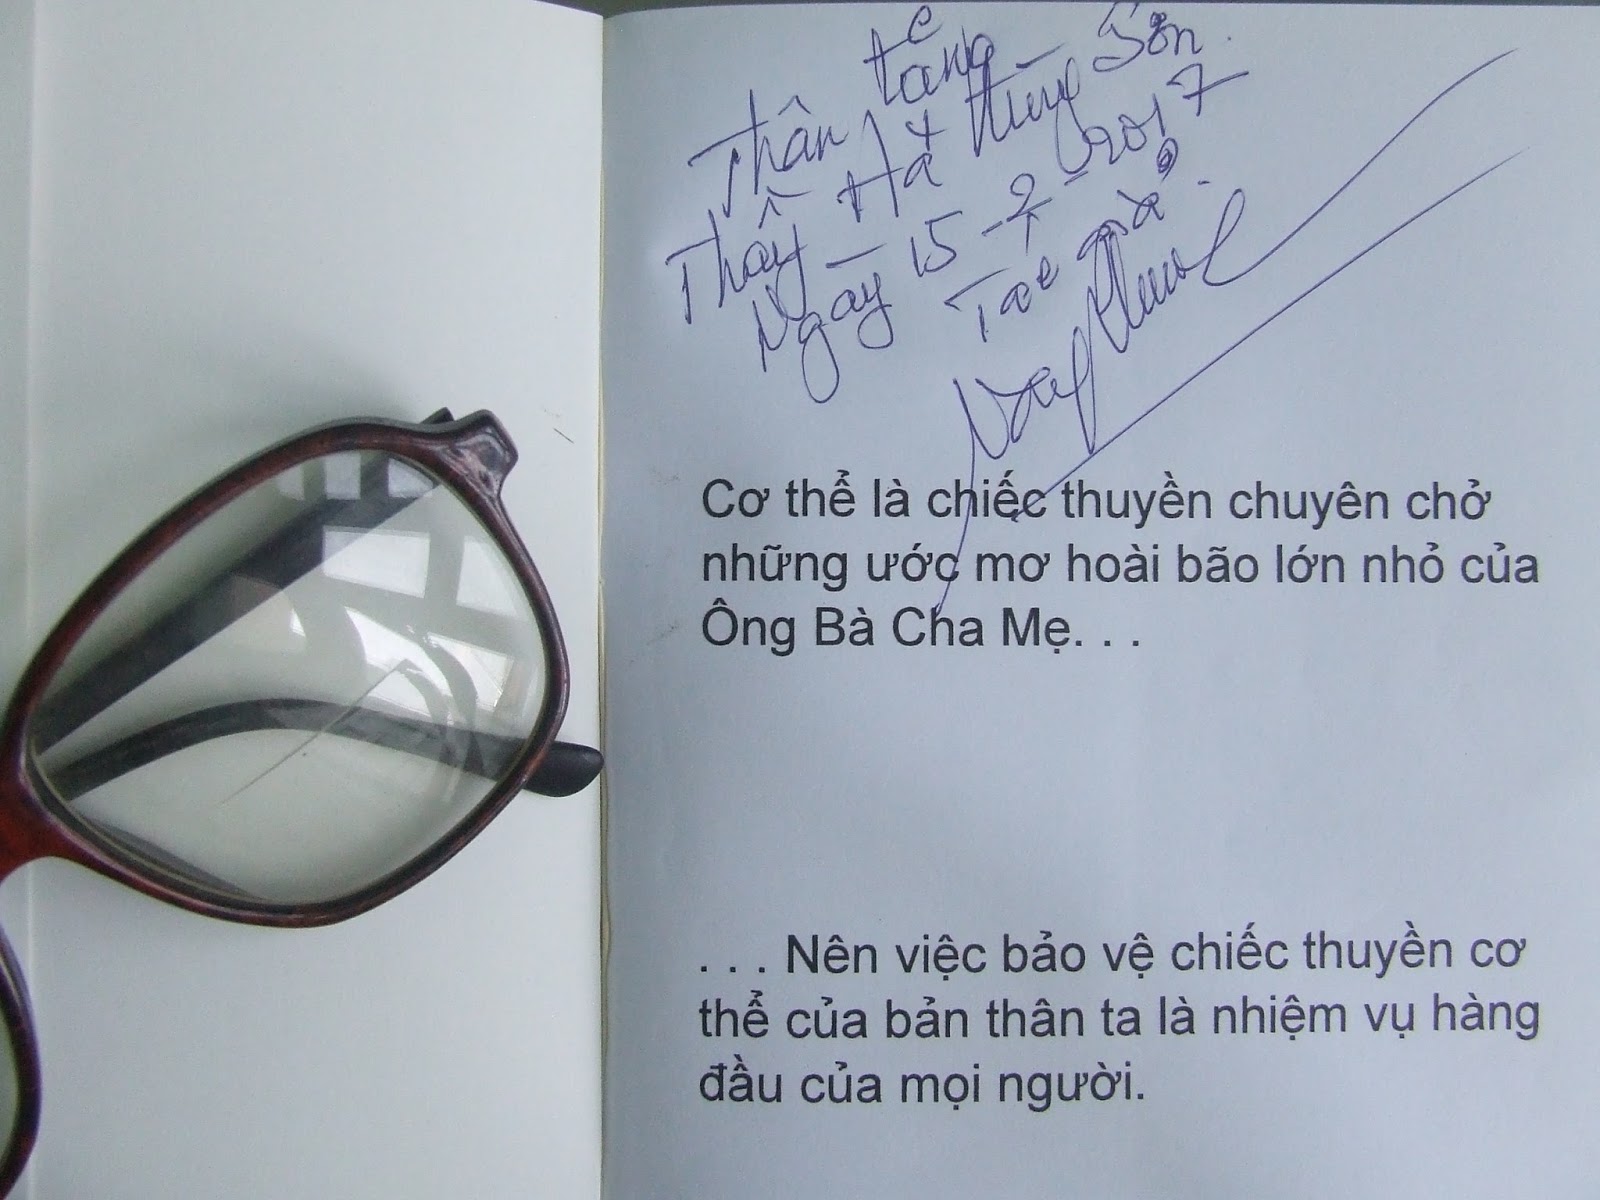 Thân tặng
Thầy Hà Tùng Sơn.
Ngày 15-2-2017
Tác giả.
Cơ thể là chiếc thuyền chuyên chở
những ước mơ hoài bão lớn nhỏ của
Ông Bà Cha Mẹ. . .
. . . Nên việc bảo vệ chiếc thuyền cơ
thể của bản thân ta là nhiệm vụ hàng
đầu của mọi người.